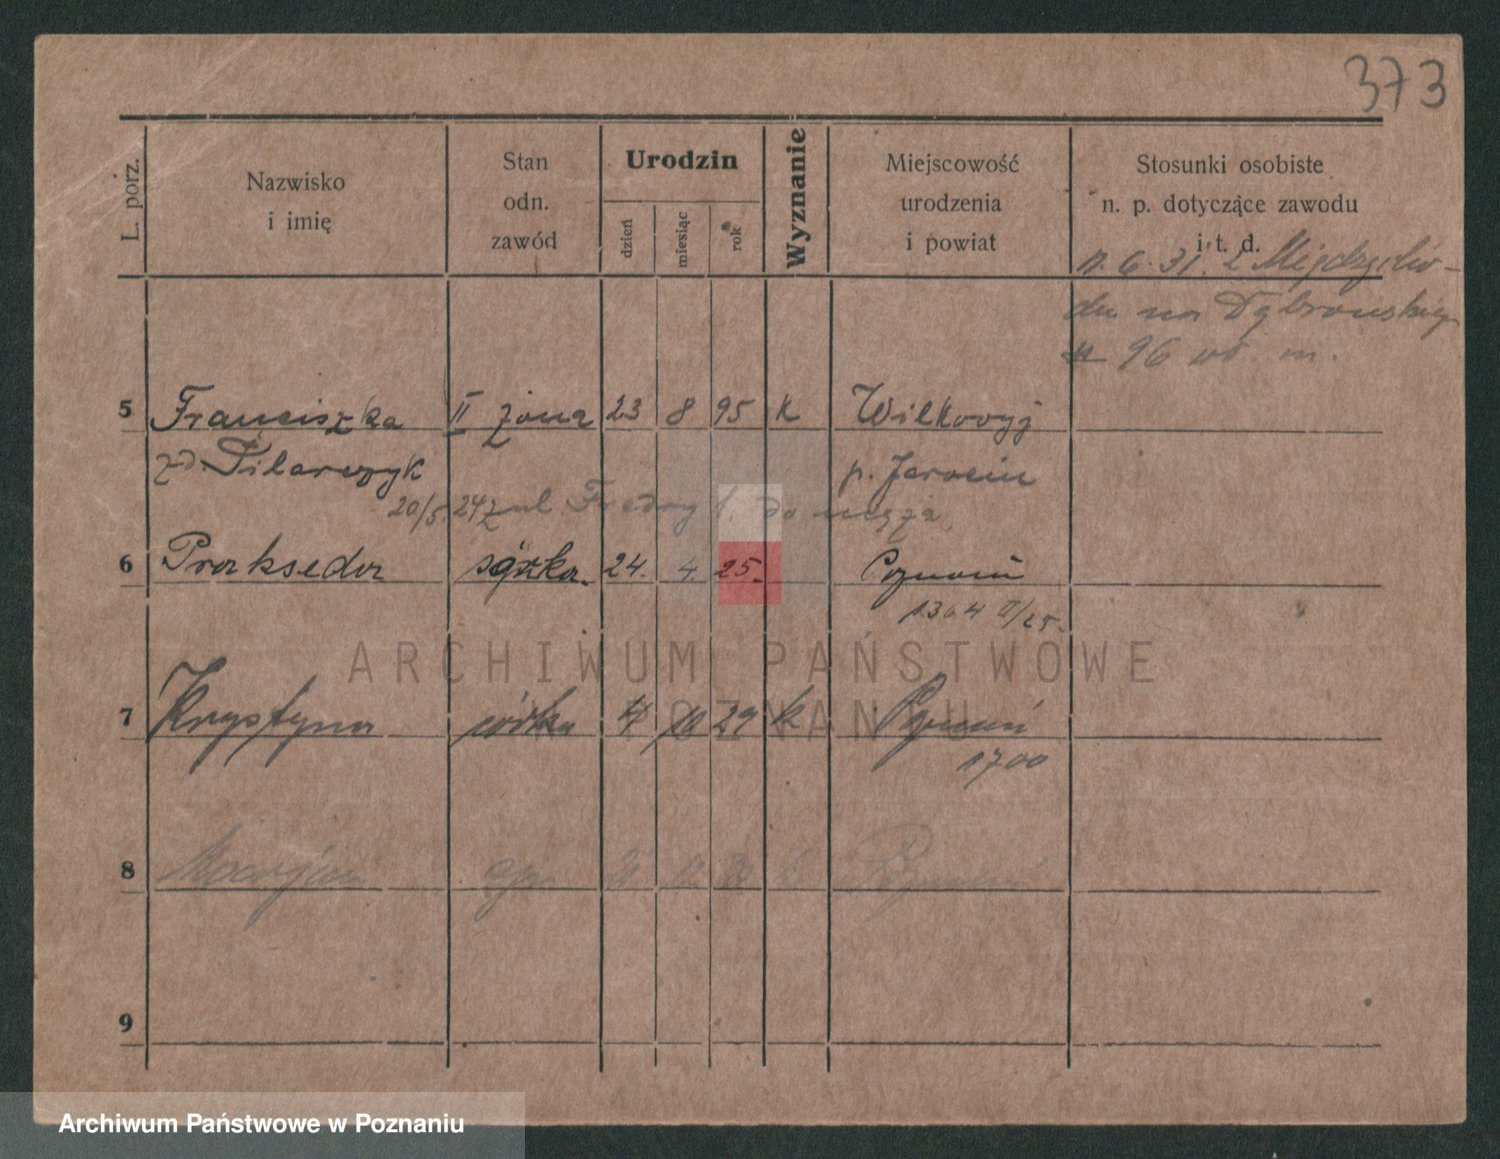 373
L. porz.
Nazwisko
i imię
Stan
odn.
zawód
Urodzin
dzień
miesiąc
rok
Wyznanie
Miejscowość
urodzenia
i powiat
Stosunki osobiste
n. p. dotyczące zawodu
i t. d.
6. 31. z Międzycho-
du na Dąbrowskiego
96 m.
5 Franciszka II żona 23 8 95 k Wilkowyj
zd Pilarczyk p. Jarocin
20/5. 24 z ul. Fredry 1. do męża
6 Prakseda córka 24. 4 25. Poznań
1304 II/25.
ARCHIWUM PAŃSTWOWE
W POZNANIU
7 Krystyna córka 4 10 29 k Poznań
1700
8 Poznań
9
Archiwum Państwowe w Poznaniu